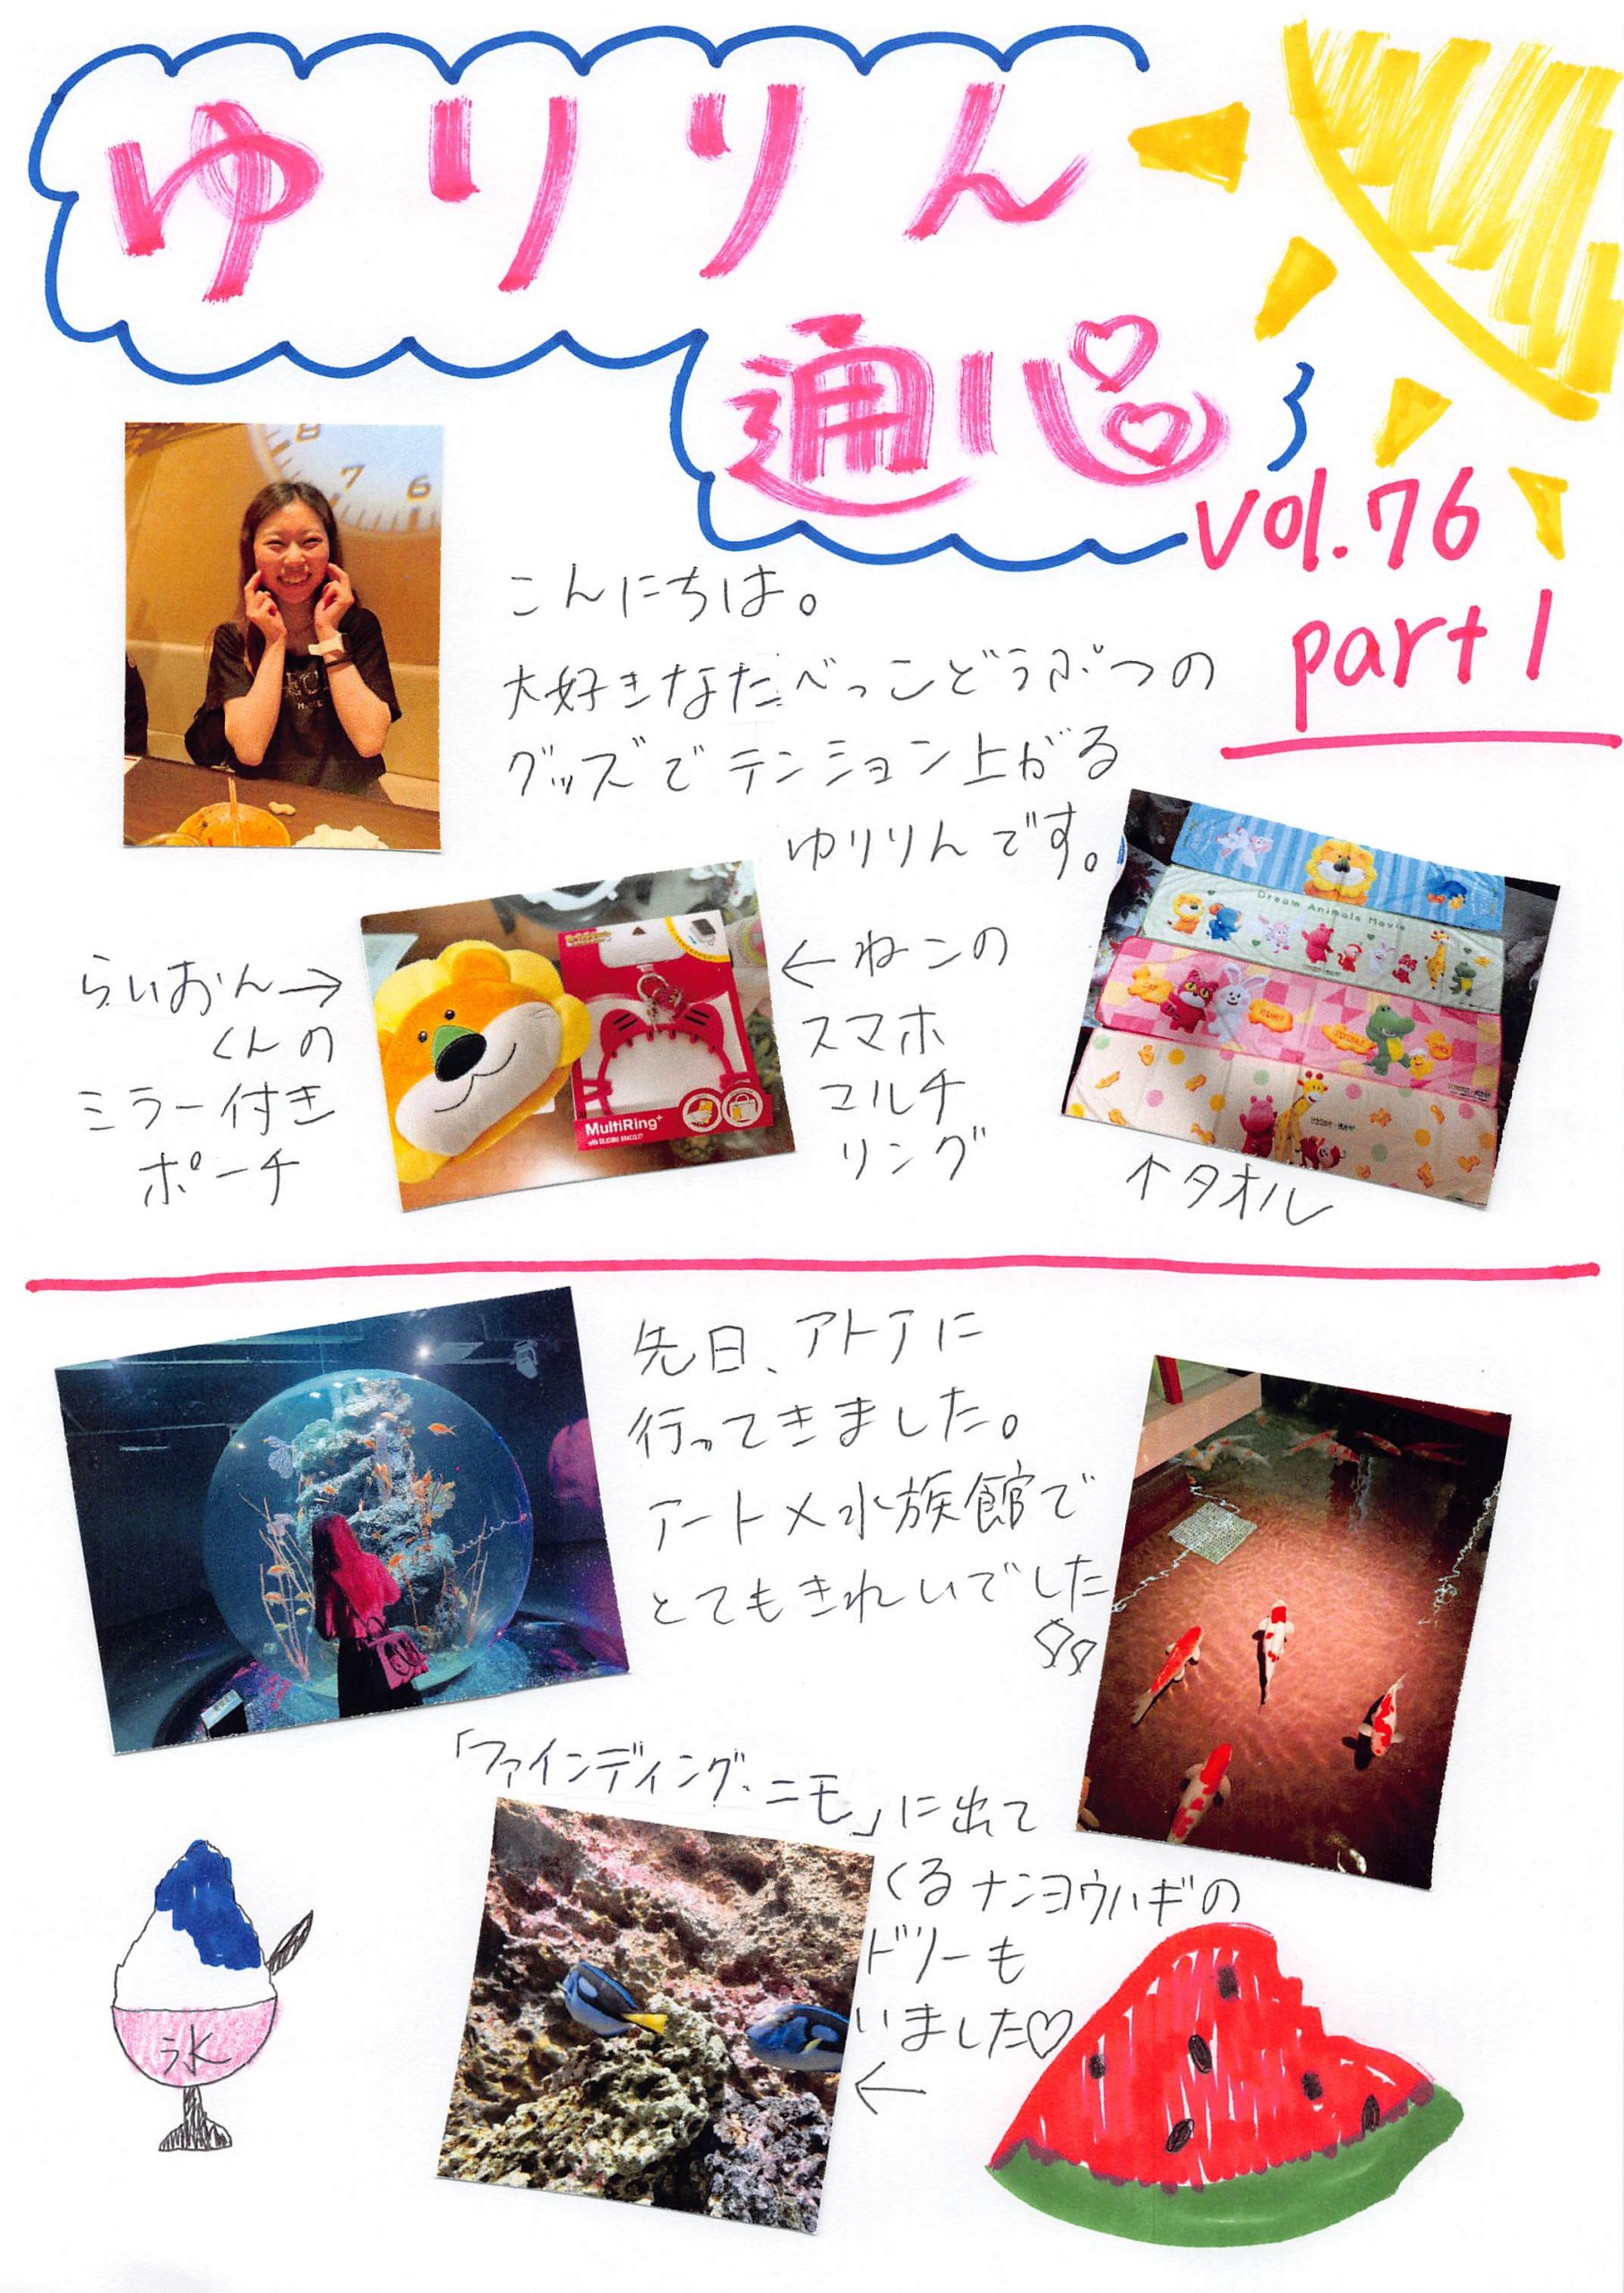 ゆりりん
通心
vol.76
part 1
こんにちは。
大好きなたべっこどうぶつの
グッズでテンション上がる
ゆりりんです。
らいおん→
くんの
ミラー付き
ポーチ
MultiRing+
with SILICONE BRACELET
←ねこの
スマホ
マルチ
リング
Dream Animals Movie
↑タオル
8
7
6
先日、アトアに
行ってきました。
アート×水族館で
とてもきれいでした
「ファインディング・ニモ」に出て
くるナンヨウハギの
ドリーも
いました♡
←
氷